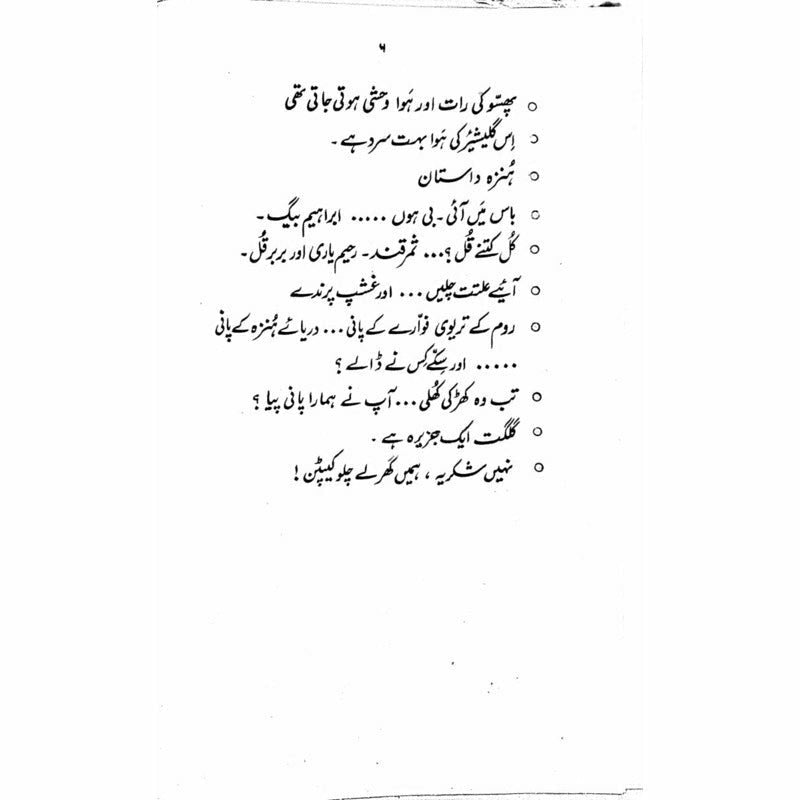 ۶
○ پھسّو کی رات اور ہَوا وحشی ہوتی جاتی تھی
○ اِس گلیشیئر کی ہَوا بہت سرد ہے ۔
○ ہُنزہ داستان
○ باس مَیں آئی ۔ بی ہوں ..... ابراہیم بیگ ۔
○ کُل کتنے قُل ؟... ثمرقند ۔ رحیم یاری اور بربر قُل ۔
○ آئیے علتت چلیں ... اور غشپ پرندے
○ روم کے تریوی فوّارے کے پانی ... دریائے ہُنزہ کے پانی
..... اور سِکّے کِس نے ڈالے ؟
○ تب وہ کھڑکی کُھلی ... آپ نے ہمارا پانی پیا ؟
○ گلگت ایک جزیرہ ہے ۔
○ نہیں شکریہ ، ہمیں گھر لے چلو کیپٹن !